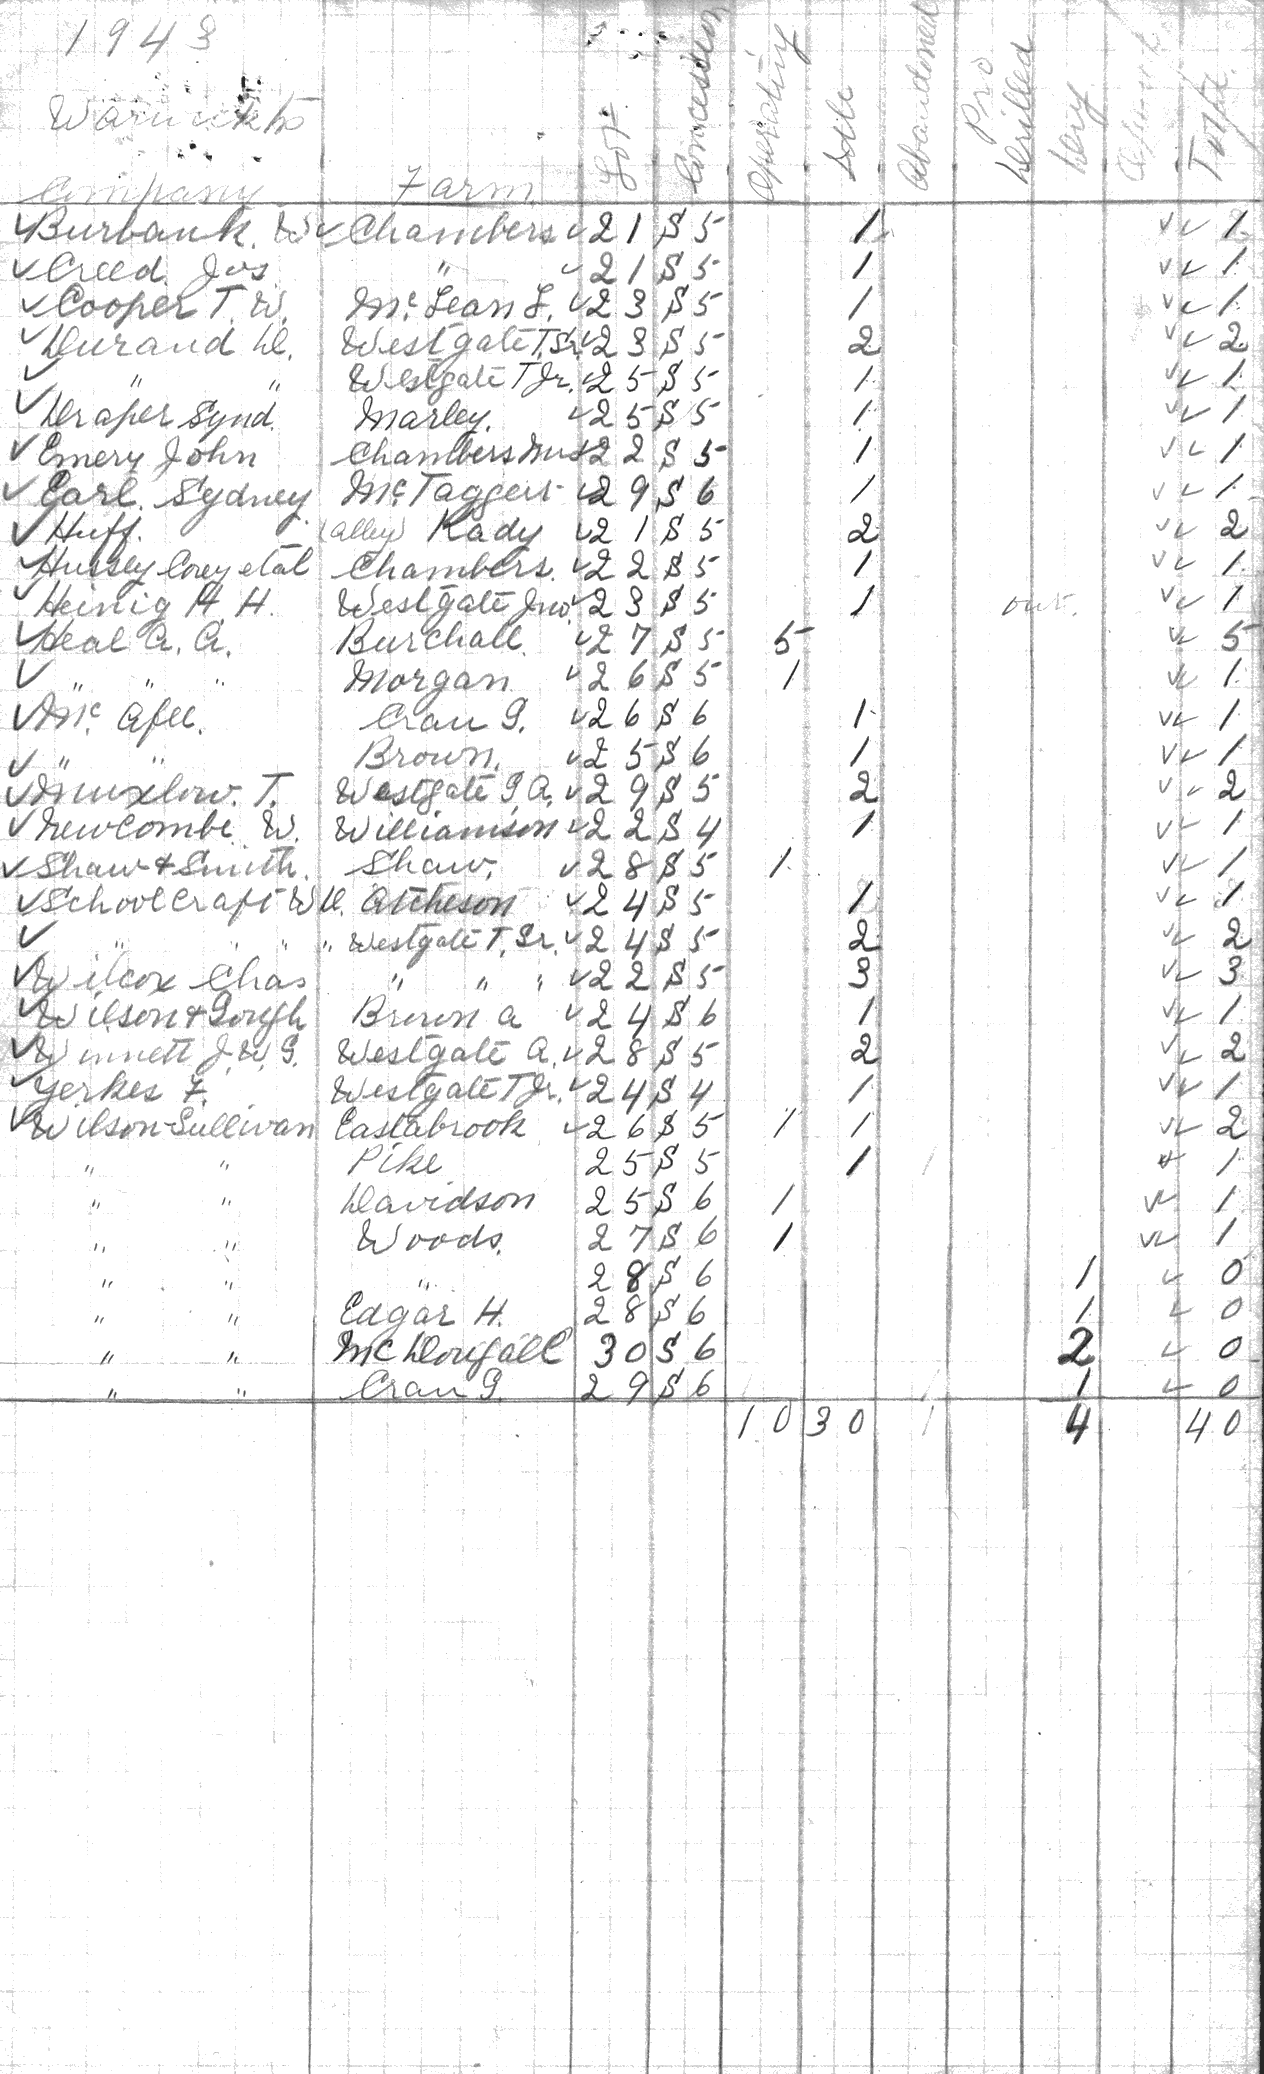 1943
Warwick
Company Farm Lot Concession Operating Idle Abandoned Pro Drilled Dry Total
✓ Burbank. W ✓ Chambers ✓ 21 S 5 1 ✓ ✓ 1
✓ Creed Jos. " ✓ 21 S 5 1 ✓ ✓ 1
✓ Cooper T. W. Mc Lean L. ✓ 23 S 5 1 ✓ ✓ 1
✓ Durand D. Westgate T. Sr. ✓ 23 S 5 2 ✓ ✓ 2
✓ " " Westgate T Jr. ✓ 25 S 5 1 ✓ ✓ 1
✓ Draper Synd. Marley. ✓ 25 S 5 1 ✓ ✓ 1
✓ Emery John Chambers Mrs ✓ 22 S 5 1 ✓ ✓ 1
✓ Earl. Sydney Mc Taggert ✓ 29 S 6 1 ✓ ✓ 1
✓ Huff. (alley) Kady ✓ 21 S 5 2 ✓ ✓ 2
✓ Hussey Corey et al Chambers. ✓ 22 S 5 1 ✓ ✓ 1
✓ Heinig H. H. Westgate Jno. ✓ 23 S 5 1 out. ✓ ✓ 1
✓ Heal A. A. Burchall. ✓ 27 S 5 5 ✓ ✓ 5
✓ " " " Morgan ✓ 26 S 5 1 ✓ ✓ 1
✓ Mc. Afee. Cran G. ✓ 26 S 6 1 ✓ ✓ 1
✓ " " Brown. ✓ 25 S 6 1 ✓ ✓ 1
✓ Muxlow. T. Westgate G. A. ✓ 29 S 5 2 ✓ ✓ 2
✓ Newcombe W. Williamson ✓ 22 S 4 1 ✓ ✓ 1
✓ Shaw & Smith. Shaw. ✓ 28 S 5 1 ✓ ✓ 1
✓ Schoolcraft W D. Atcheson ✓ 24 S 5 1 ✓ ✓ 1
✓ " " " " Westgate T. Sr. ✓ 24 S 5 2 ✓ ✓ 2
✓ Wilcox Chas " " " ✓ 22 S 5 3 ✓ ✓ 3
✓ Wilson & Gough Brown A ✓ 24 S 6 1 ✓ ✓ 1
✓ Winnett J. W. G. Westgate A. ✓ 28 S 5 2 ✓ ✓ 2
✓ Yerkes F. Westgate T Jr. ✓ 24 S 4 1 ✓ ✓ 1
✓ Wilson-Sullivan Eastabrook ✓ 26 S 5 1 1 ✓ ✓ 2
" " Pike 25 S 5 1 1 ✓ 1
" " Davidson 25 S 6 1 ✓ ✓ 1
" " Woods. 27 S 6 1 ✓ ✓ 1
" " " 28 S 6 1 ✓ 0
" " Edgar H. 28 S 6 1 ✓ 0
" " Mc Dougall 30 S 6 2 ✓ 0
" " Cran G. 29 S 6 1 ✓ 0
10 30 1 4 40